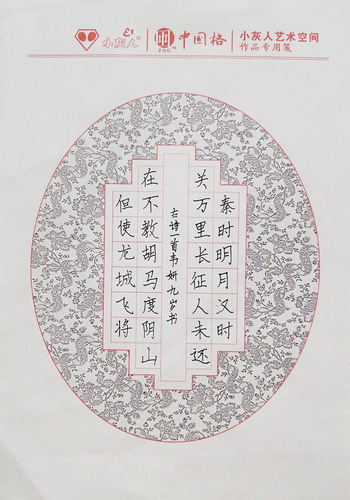 小灰人®
中国格
ZGG™
小灰人艺术空间
作品专用笺
秦时明月又时
关万里长征人未还
古诗一首韦妍九岁书
在不教胡马度阴山
但使龙城飞将